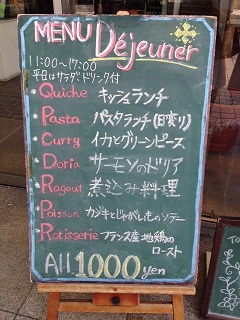 MENU Déjeuner
11:00~17:00
平日はサラダ・ドリンク付
Quiche キッシュランチ
Pasta パスタランチ(日変り)
Curry イカとグリーンピース
Doria サーモンのドリア
Ragout 煮込み料理
Poisson カジキとじゃがいものソテー
Rotisserie フランス産地鶏の
ロースト
All 1000 yen